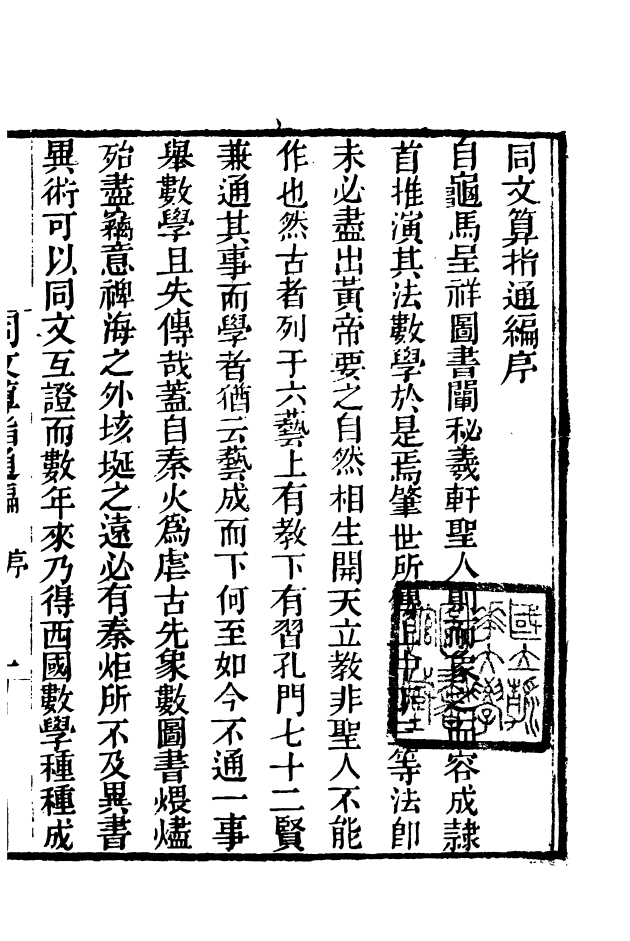 同文算指通編序
自龜馬呈祥圖書闡秘羲軒聖人則而象之而容成隷
首推演其法數學於是焉肇世所傳上中下三等法卽
未必盡出黃帝要之自然相生開天立教非聖人不能
作也然古者列于六藝上有教下有習孔門七十二賢
兼通其事而學者猶云藝成而下何至如今不通一事
舉數學且失傳哉蓋自秦火爲虐古先象數圖書煨燼
殆盡竊意裨海之外垓埏之遠必有秦炬所不及異書
異術可以同文互證而數年來乃得西國數學種種成
同文算指通編 序 一